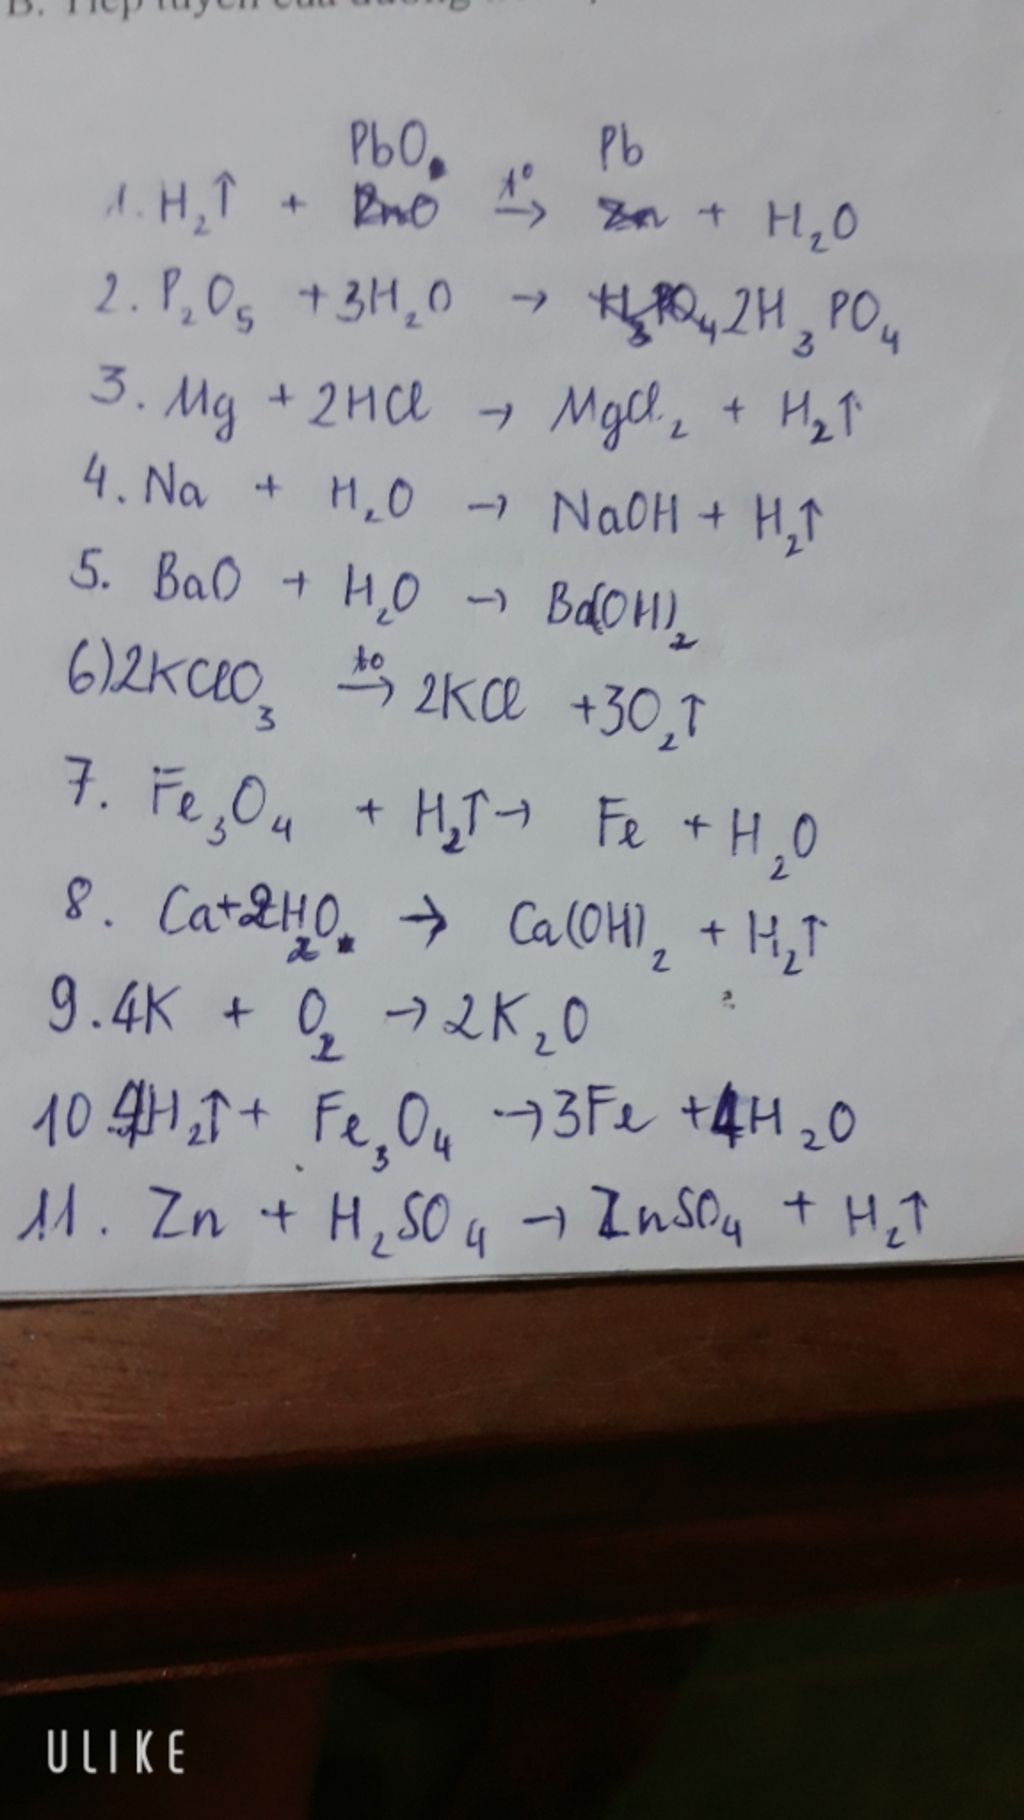 B. Tiếp tuyến của đường
PbO Pb
1. H₂↑ + ZnO t° → Zn + H₂O
2. P₂O₅ + 3H₂O → H₃PO₄ 2H₃PO₄
3. Mg + 2HCl → MgCl₂ + H₂↑
4. Na + H₂O → NaOH + H₂↑
5. BaO + H₂O → Ba(OH)₂
6) 2KClO₃ to → 2KCl + 3O₂↑
7. Fe₃O₄ + H₂↑ → Fe + H₂O
8. Ca + 2H₂O → Ca(OH)₂ + H₂↑
9. 4K + O₂ → 2K₂O
10. 4H₂↑ + Fe₃O₄ → 3Fe + 4H₂O
11. Zn + H₂SO₄ → ZnSO₄ + H₂↑
ULIKE